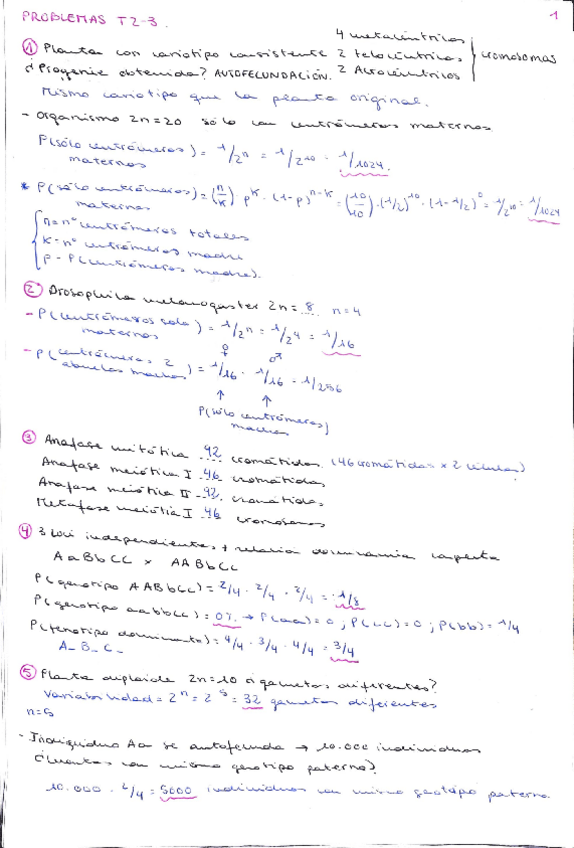 PROBLEMAS T2-3.
1
4 metacéntricos
① Planta con cariotipo consistente 2 telocéntricos cromosomas
¿Progenie obtenida? AUTOFECUNDACIÓN. 2 Acrocéntricos
Mismo cariotipo que la planta original.
- Organismo 2n=20 sólo con centrómeros maternos
P(sólo centrómeros) = 1/2^n = 1/2^10 = 1/1024.
maternos
* P(sólo centrómeros) = (n/k) p^k · (1-p)^n-k = (10/10) · (1/2)^10 · (1-1/2)^0 = 1/2^10 = 1/1024
maternos
n = nº centrómeros totales
k = nº centrómeros madre
p = P(centrómeros madre).
② Drosophila melanogaster 2n = 8 n=4
- P(centrómeros solo) = 1/2^n = 1/2^4 = 1/16
maternos
♀ ♂
- P(centrómeros 2) = 1/16 · 1/16 = 1/256
abuelos machos
↑ ↑
P(sólo centrómeros)
machos
③ Anafase mitótica 92 cromátidas (46 cromátidas x 2 células)
Anafase meiótica I 46 cromátidas
Anafase meiótica II 92 cromátidas
Metafase meiótica I 46 cromosomas
④ 3 loci independientes + relación dominancia completa
AaBbCC x AABbCC
P(genotipo AABbCC) = 2/4 · 2/4 · 2/4 = 1/8
P(genotipo aabbcc) = 0% → P(aa) = 0 ; P(cc) = 0 ; P(bb) = 1/4
P(fenotipo dominante) = 4/4 · 3/4 · 4/4 = 3/4
A_B_C_
⑤ Planta diploide 2n=10 ¿gametos diferentes?
Variabilidad = 2^n = 2^5 = 32 gametos diferentes
n=5
- Individuo Aa se autofecunda → 10.000 individuos
¿Cuántos con mismo genotipo paterno?
10.000 · 2/4 = 5000 individuos con mismo genotipo paterno.